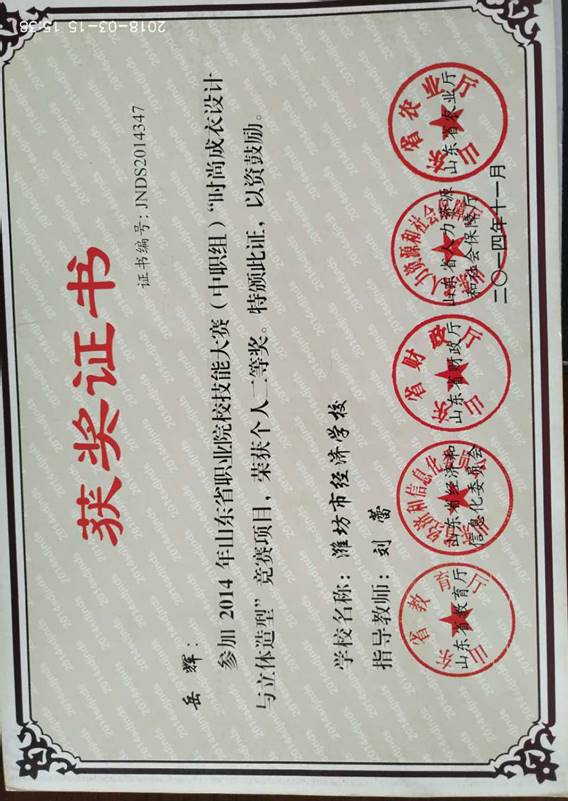 2018-03-15 15:38
证书编号:JNDS2014347
获奖证书
岳辉:
参加2014年山东省职业院校技能大赛(中职组)“时尚成衣设计
与立体造型”竞赛项目,荣获个人二等奖。特颁此证,以资鼓励。
学校名称:潍坊市经济学校
指导教师:刘蕾
山东省教育厅
山东省经济和
信息化委员会
山东省财政厅
山东省人力资源
和社会保障厅
山东省农业厅
二〇一四年十一月